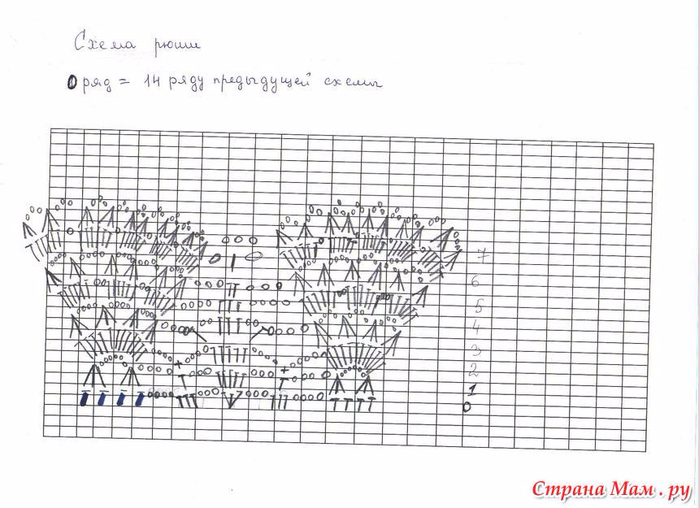 Схема рюши
0 ряд = 14 ряду предыдущей схемы
7
6
5
4
3
2
1
0
Страна Мам . ру